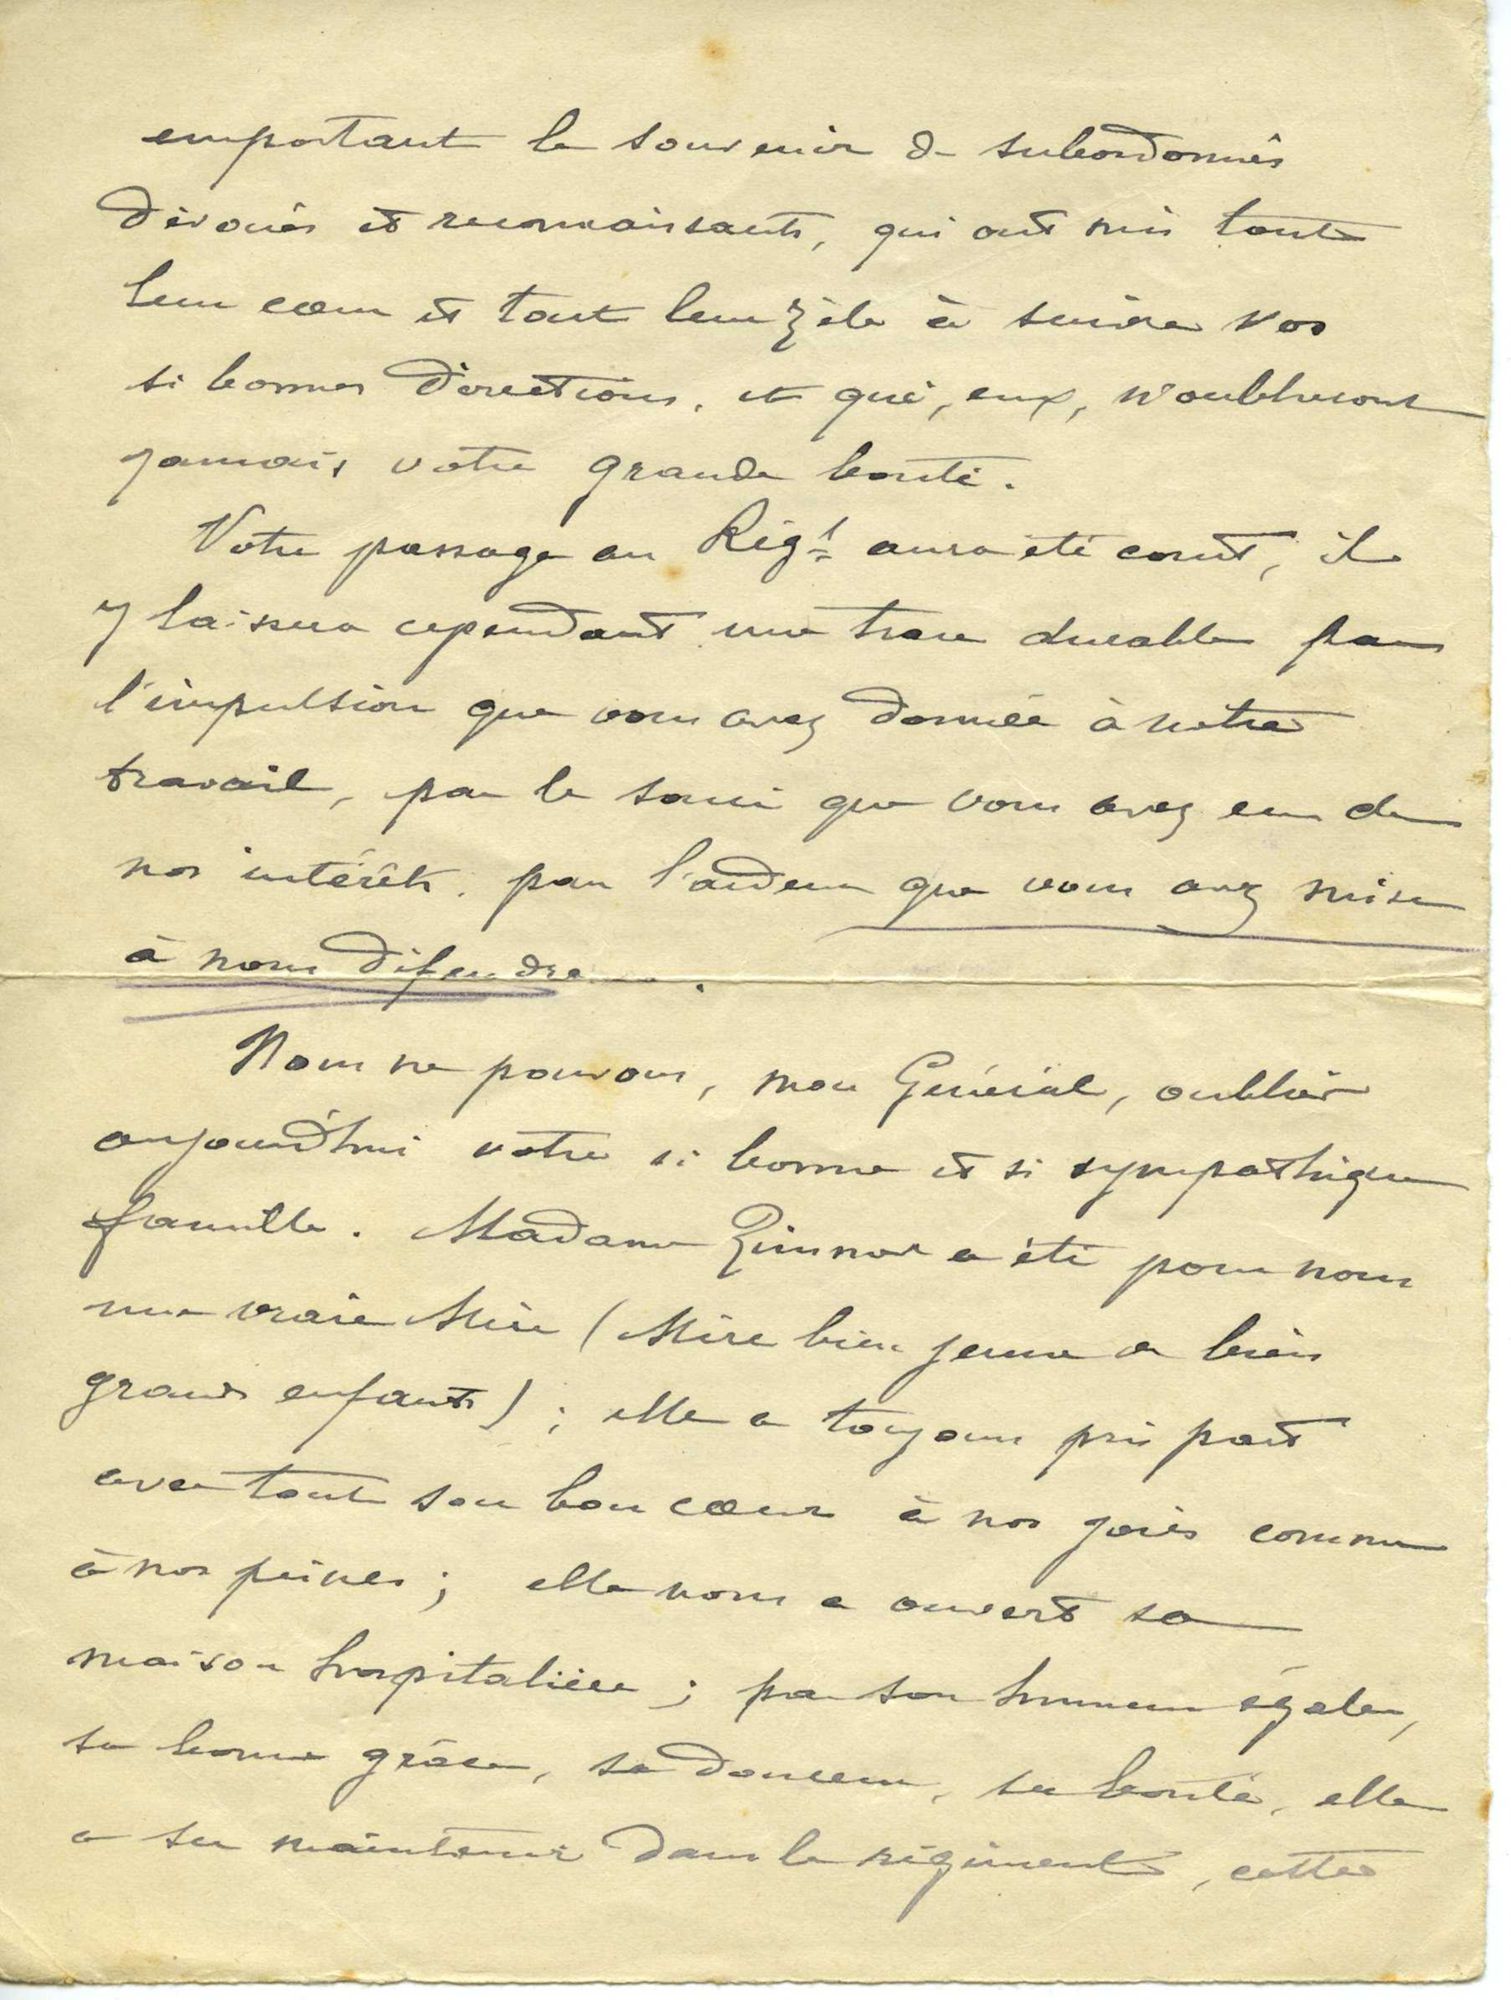 emportant le souvenir de subordonnés
dévoués et reconnaissants, qui ont mis tout
leur cœur et tout leur zèle à suivre vos
si bonnes directions, et qui, eux, n'oublieront
jamais votre grande bonté.
Votre passage au Régt aura été court, il
y laissera cependant une trace durable par
l'impulsion que vous avez donnée à notre
travail, par le souci que vous avez eu de
nos intérêts, par l'ardeur que vous avez mise
à nous défendre.
Nous ne pouvons, mon Général, oublier
aujourd'hui votre si bonne et si sympathique
famille. Madame a été pour nous
une vraie Mère (Mère bien jeune de bien
grands enfants) ; elle a toujours pris part
avec tout son bon cœur à nos joies comme
à nos peines ; elle nous a ouvert sa
maison hospitalière ; par son humeur égale,
sa bonne grâce, sa douceur, sa bonté, elle
a su maintenir dans le régiment, cette